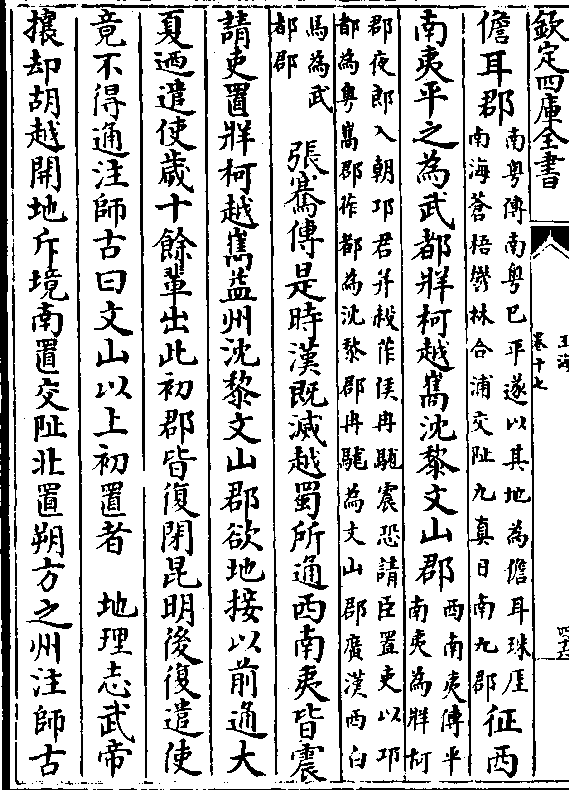 欽定四庫全書
玉海
卷十七
儋耳郡
南粤傳南粤已平遂以其地為儋耳珠厓
南海蒼梧鬱林合浦交阯九真日南九郡
征西
南夷平之為武都牂柯越嶲沈黎文山郡
西南夷傳平
南夷為牂柯
郡夜郎入朝邛君并殺莋侯冉駹震恐請臣置吏以邛
都為粤嶲郡莋都為沈黎郡冉駹為文山郡廣漢西白
馬為武
都郡
張騫傳是時漢既滅越蜀所通西南夷皆震
請吏置牂柯越嶲益州沈黎文山郡欲地接以前通大
夏廼遣使歲十餘輩出此初郡皆復閉昆明後復遣使
竟不得通注師古曰文山以上初置者 地理志武帝
攘却胡越開地斥境南置交阯北置朔方之州注師古